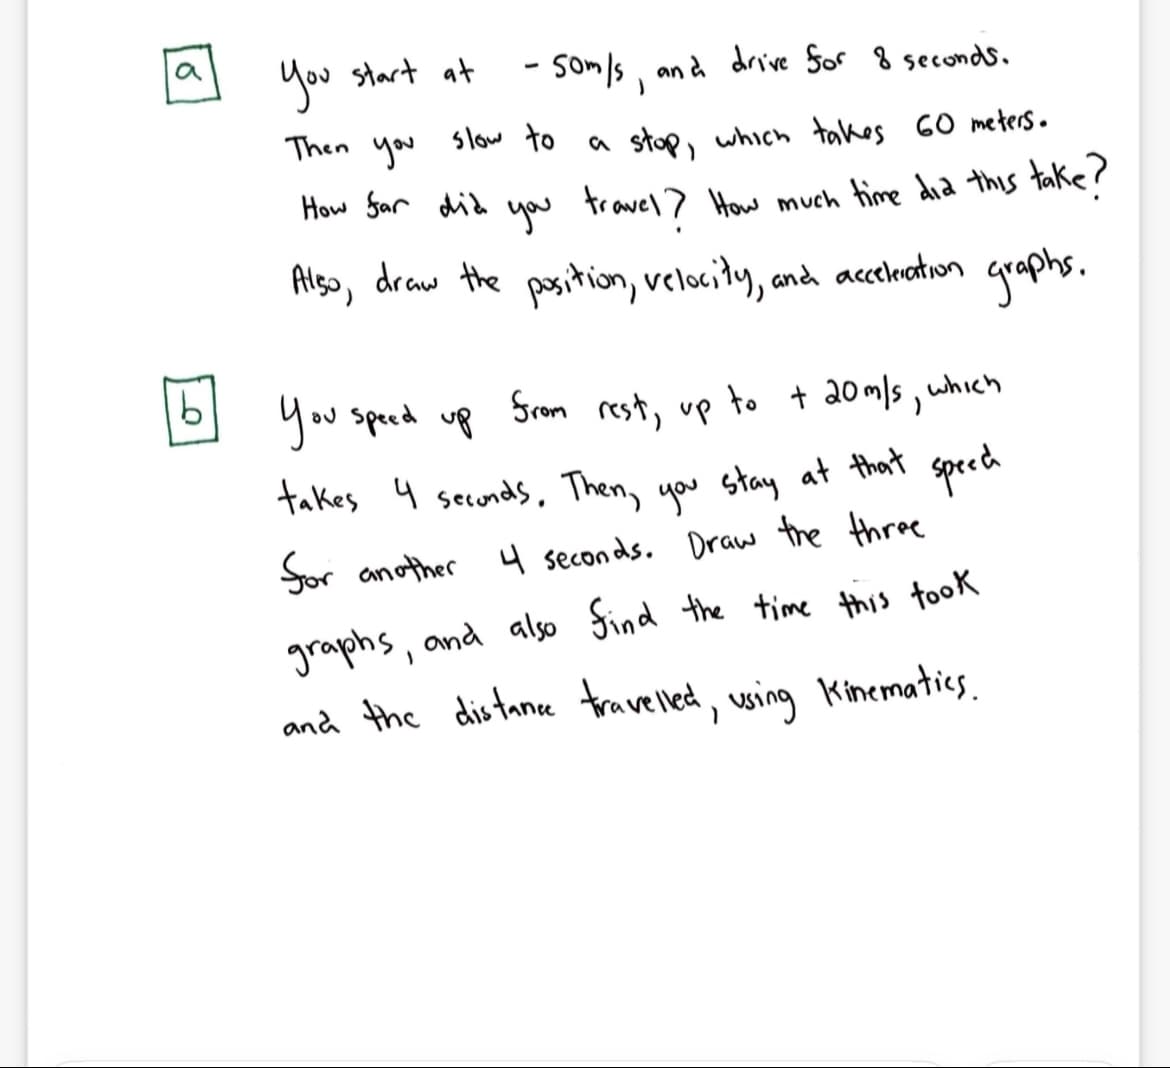 a You start at - 50m/s, and drive for 8 seconds.
Then you slow to a stop, which takes 60 meters.
How far did you travel? How much time did this take?
Also, draw the position, velocity, and acceleration graphs.
b You speed up from rest, up to + 20m/s, which
takes 4 seconds. Then, you stay at that speed
for another 4 seconds. Draw the three
graphs, and also find the time this took
and the distance travelled, using kinematics.